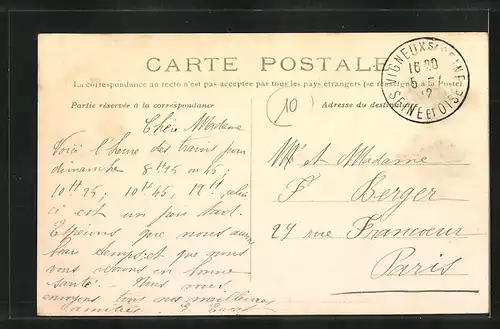 CARTE POSTALE
La correspondance au recto n'est pas acceptée par tous les pays étrangers (se renseigner à la Poste)
Partie réservée à la correspondance
Adresse du destinataire
10
VIGNEUX S/ SEINE
16 20
5 - 7
12
SEINE ET OISE
Chère Madame
Voici l'heure des trains pour
dimanche 8H 45
10H 25; 10H 45,
ci est un peu tard.
Espérons que nous aurons
beau temps; et que nous
vous verrons en bonne
santé. Nous vous
envoyons tous nos meilleures
amitiés. E.
Mr et Madame
F Berger
29 rue Francoeur
Paris